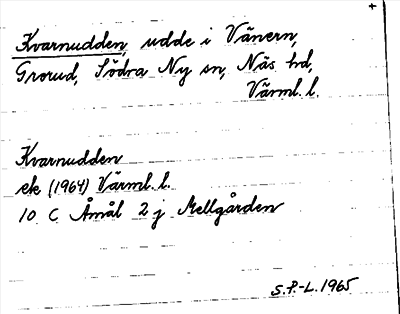 Kvarnudden, udde i Vänern,
Grorud, Södra Ny sn, Näs hd,
Värml. l.
Kvarnudden
ek (1964) Värml. l.
10 C Åmål 2 j Mellgården
S.P.-L. 1965